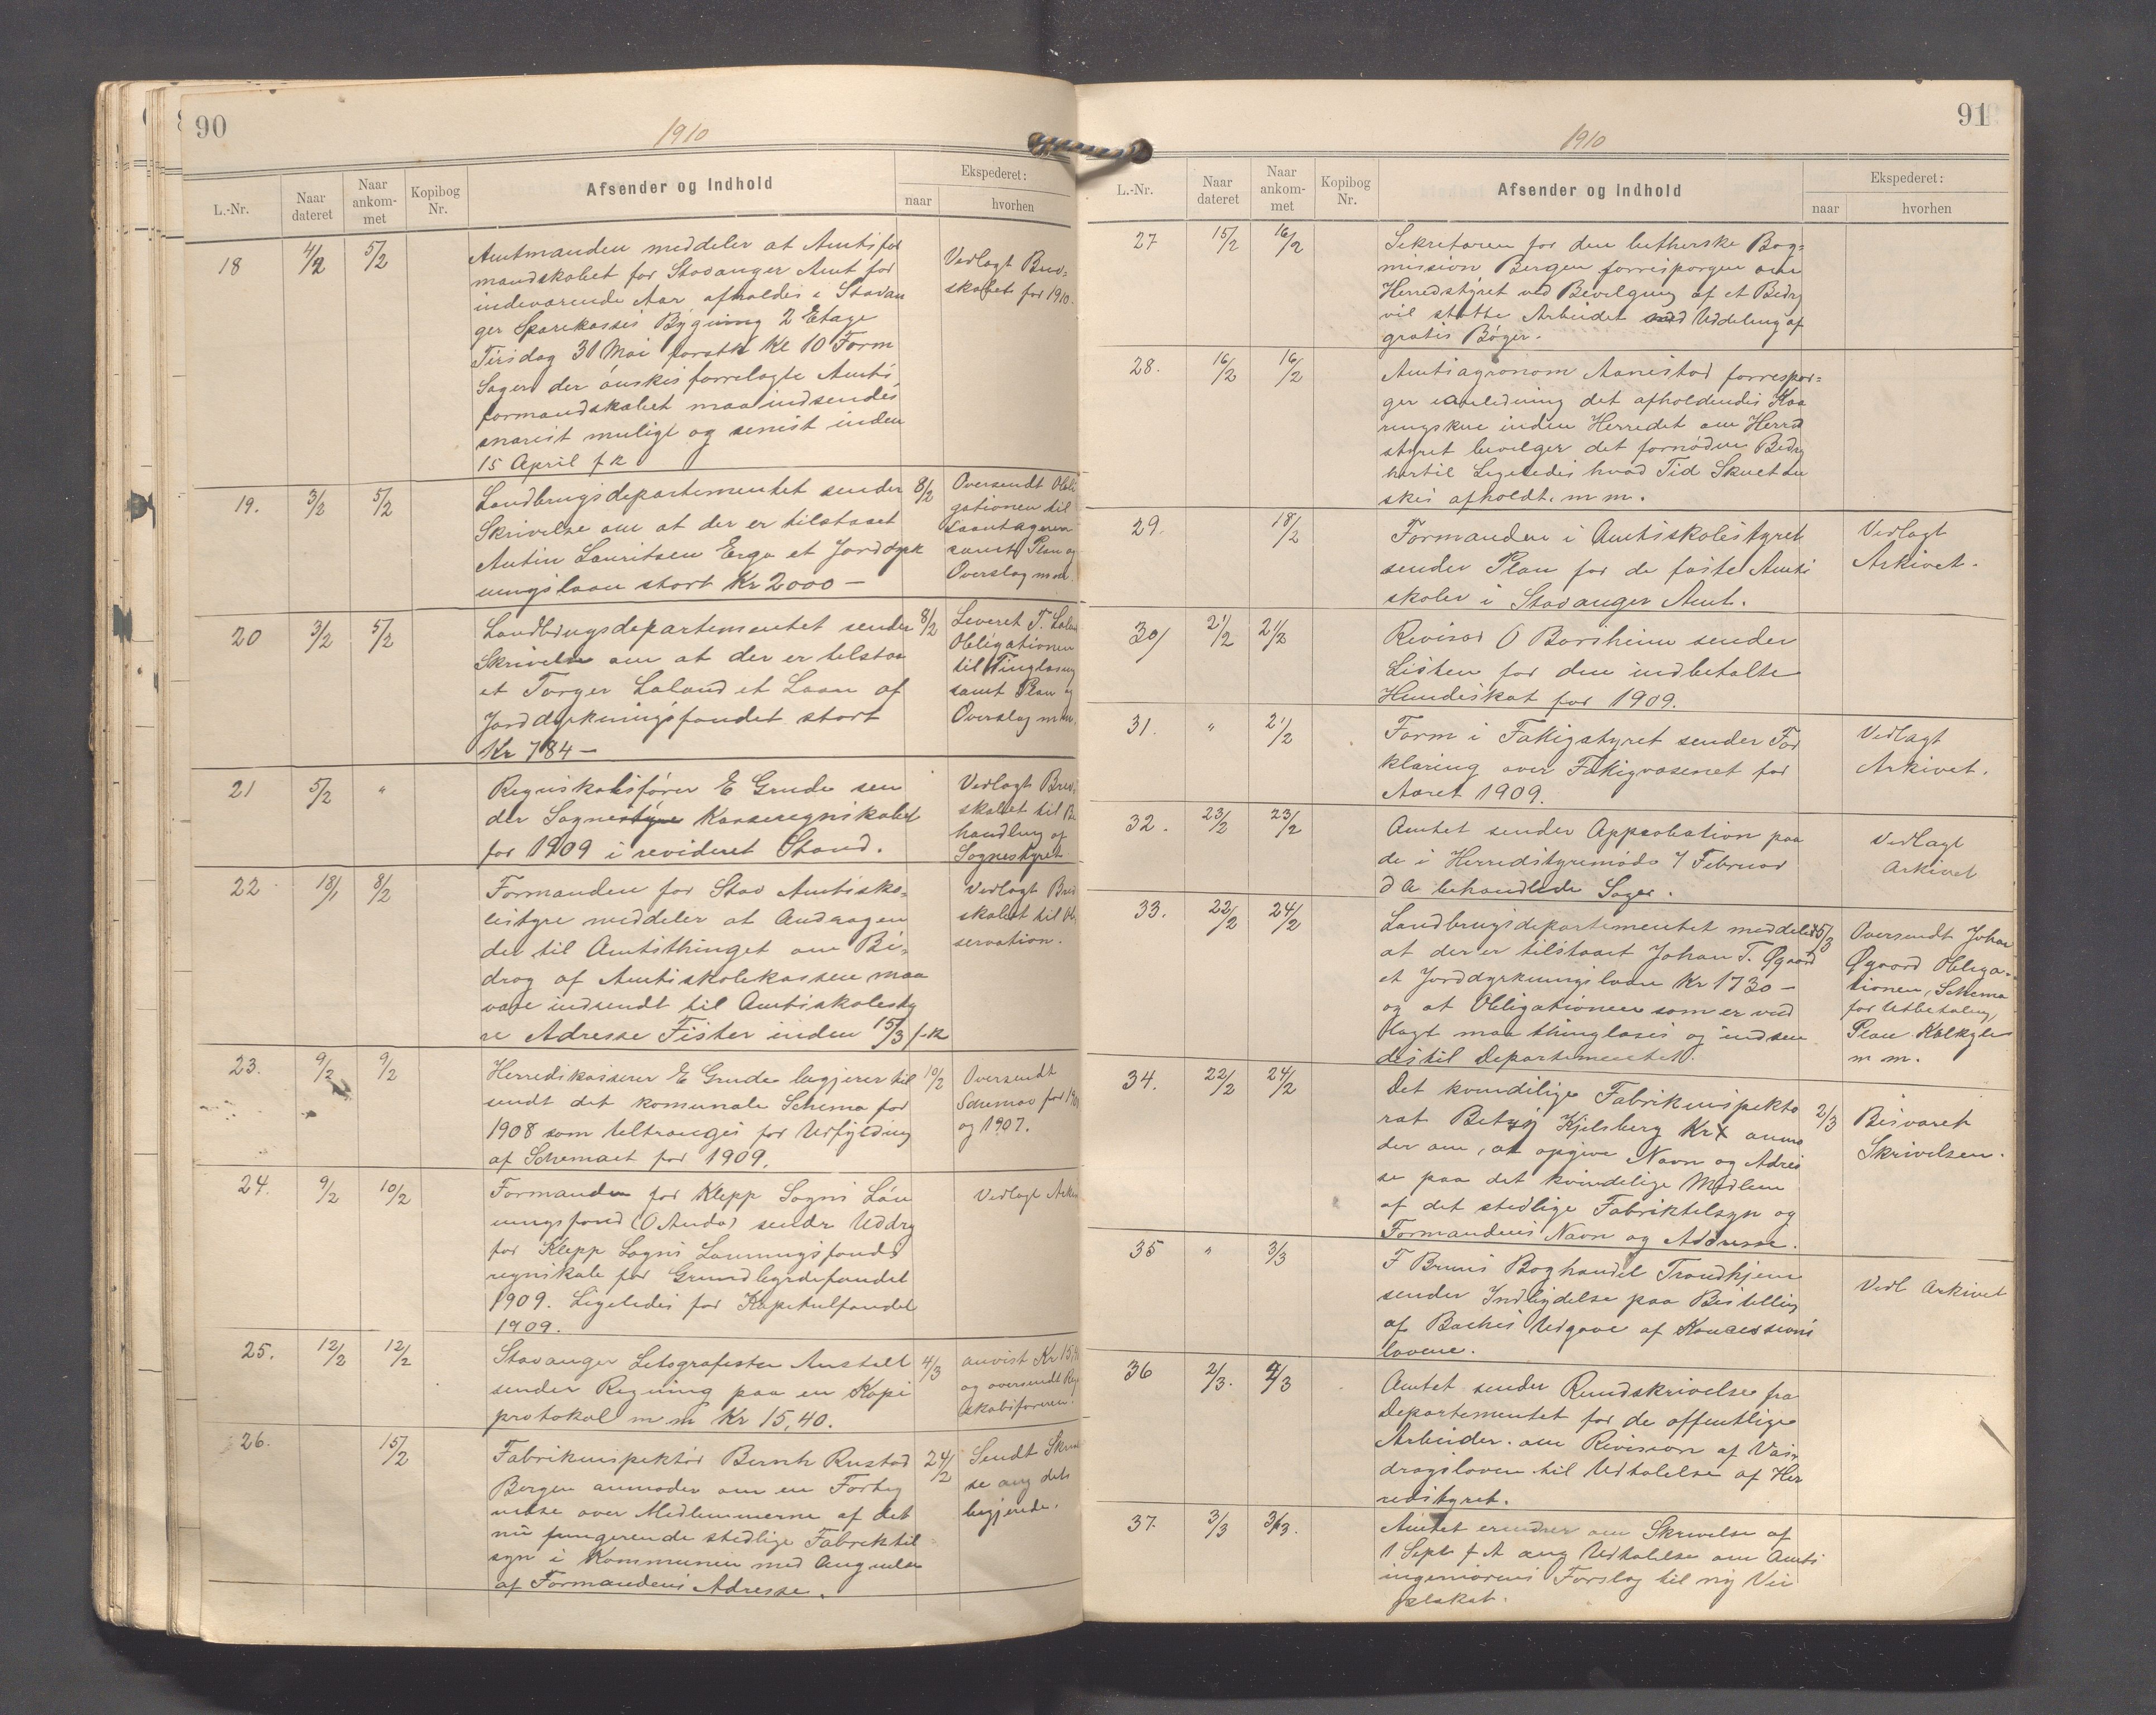 90
1910
L.-Nr.
Naar dateret
Naar ankom-met
Kopibog Nr.
Afsender og Indhold
Ekspederet:
naar
hvorhen
18 4/2 5/2 Amtmanden meddeler at Amtsfor
mandskabet for Stavanger Amt for
indeværende Aar afholdes i Stavan
ger Sparekasses Bygning 2 Etage
Tirsdag 31 Mai førstk Kl 10 Form
Sager der ønskes forrelagte Amts
formandskabet maa indsendes
snarest muligt og senest inden
15 April f k
Vedlagt Brev-
skabet for 1910.
19. 3/2 5/2 Landbrugsdepartementet sender 8/2
Skrivelse om at der er tilstaaet
Autin Lauritsen Erga et Jorddyrk
ningslaan stort Kr 2000 —
Oversendt Obli
gationen til
Laantageren
samt Plan og
Overslag m m.
20 3/2 5/2 Landbrugsdepartementet sender 8/2
Skrivelse om at der er tilstaa
et Torger Laland et Laan af
Jorddyrkningsfondet stort
Kr 784 —
Leveret T. Laland
Obligationen
til Tinglæsning
samt Plan og
Overslag m m.
21 5/2 " Regnskabsfører E Grude sen
der Sognestyre Kasseregnskabet
for 1909 i revideret Stand.
Vedlagt Brev
skabet til Be
handling af
Sognestyret
22 18/1 8/2 Formanden for Stav Amtssko-
lestyre meddeler at Andragen
der til Amtsthinget om Bi-
drag af Amtsskolekassen maa
være indsendt til Amtsskolesty
re Adresse Fister inden 15/3 f. k
Vedlagt Brev
skabet til Ob
servation.
23. 9/2 9/2 Herredskasserer E Grude begjerer til 10/2
sendt det komunale Schema for
1908 som tiltrænges for Udfylding
af Schemaet for 1909.
Oversendt
Schemaer for 1908
og 1907.
24. 9/2 10/2 Formanden for Klepp Sogns Løn
ningsfond (O Anda) sender Uddrg
for Klepp Sogns Lønningsfonds
regnskab for Grundbyrdefondet
1909. Ligeledes for Kapitalfondet
1909.
Vedlagt Arkiv
25. 12/2 12/2 Stavanger Litografiske Anstalt 4/3
sender Regning paa en Kopi
protokol m m Kr 15,40.
anvist Kr 15,40
og oversendt Reg
skabsføreren.
26. 15/2 Fabrikinspektør Bernh Rustad 24/2
Bergen anmoder om en Forteg
nelse over Medlemmerne af det
nu fungerende stedlige Fabriktil
syn i Kommunen med Angivelse
af Formandens Adresse.
Sendt Skrivel
se ang dets
begjerede.
91
1910
L.-Nr.
Naar dateret
Naar ankom-met
Kopibog Nr.
Afsender og Indhold
Ekspederet:
naar
hvorhen
27 15/2 16/2 Sekretæren for den lutherske Bog-
mission Bergen forrespørgen om
Herredstyret ved Bevilgning af et Bidrg
vil støtte Arbeidet med Uddeling af
gratis Bøger.
28. 16/2 16/2 Amtsagronom Aanestad forrespør-
ger i anledning det afholdendes Kaa
ringskue inden Herredet om Herred
styret bevilger det fornødne Bidrg
hertil Ligeledes hvad Tid Skuet øn
skes afholdt. m m.
29. 18/2 Formanden i Amtsskolestyret
sender Plan for de faste Amts
skoler i Stavanger Amt.
Vedlagt
Arkivet.
30 21/2 21/2 Revisor O Borsheim sender
Listen for den indbetalte
Hundeskat for 1909.
31. " 21/2 Form i Fattigstyret sender For
klaring over Fattigvæsenet for
Aaret 1909.
Vedlagt
Arkivet.
32. 23/2 23/2 Amtet sender Approbation paa
de i Herredstyremøde 7 Februar
d A behandlede Sager.
Vedlagt
Arkivet
33. 22/2 24/2 Landbrugsdepartementet meddeler 5/3
at der er tilstaaet Johan T. Øgaard
et Jorddyrkningslaan Kr 1730 —
og at Obligationen som er ved
lagt maa thinglæses og indsen
des til Departementet.
Oversendt Johan
Øgaard Obliga-
tionen, Schema
for Utbetaling,
Plan Kalkyle
m m.
34. 22/2 24/2 Det kvindelige Fabrikinspekto
rat Betzy Kjelsberg Kra anmo 2/3
der om, at opgive Navn og Adres
se paa det kvindelige Medlem
af det stedlige Fabriktilsyn og
Formandens Navn og Addresse.
Besvaret
Skrivelsen.
35 " 3/3 F Bruns Boghandel Trondhjem
sender Indbydelse paa Bestilling
af Baches Udgave af Koncessions
lovene.
Vedl Arkivet
36 2/3. 4/3 Amtet sender Rundskrivelse fra
Departementet for de offentlige
Arbeider. om Revision af Vas
dragsloven til Udtalelse af Her
redstyret.
37. 3/3 3/3. Amtet erindrer om Skrivelse af
1 Sept f A ang Udtalelse om Amts
ingeniørens Forslag til ny Vei
plakat.